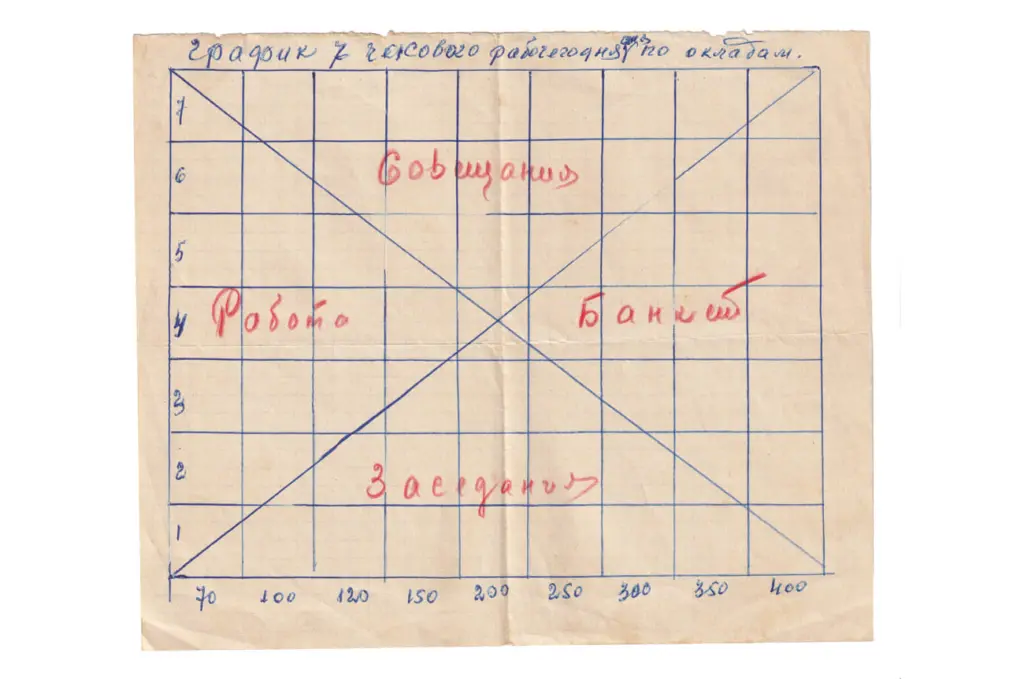 График 7 часового рабочегодня по окладам.
7
6 Совищания
5
4 Работа Банкет
3
2 Заседания
1
70 100 120 150 200 250 300 350 400